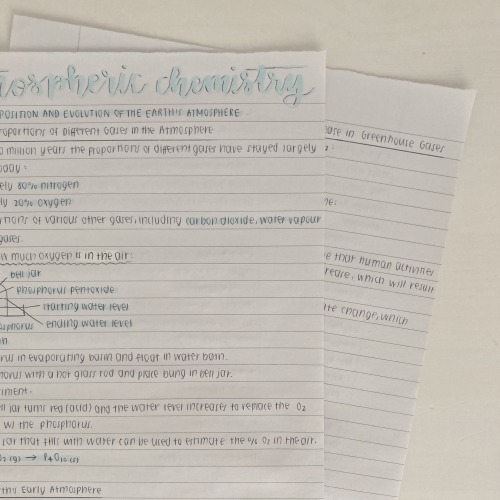 tospheric chemistry
POSITION AND EVOLUTION OF THE EARTH'S ATMOSPHERE
roportions of Different Gases in the Atmosphere
0 million years the proportions of different gases have stayed largely
oday:
ely 80% nitrogen
ly 20% oxygen
rtions of various other gases, including carbon dioxide, water vapour
gases.
w much oxygen is in the air:
bell jar
phosphorus pentoxide
starting water level
osphorus
ending water level
rus in evaporating basin and float in water bath.
horus with a hot glass rod and place bung in bell jar.
iment.
ll jar turns red (acid) and the water level increases to replace the O₂
w/ the phosphorus.
jar that fills with water can be used to estimate the % O₂ in the air.
O₂ (g) → P₄O₁₀ (s)
rth's Early Atmosphere
ease in Greenhouse Gases
e:
e that human activities
rease, which will result
ate change, which